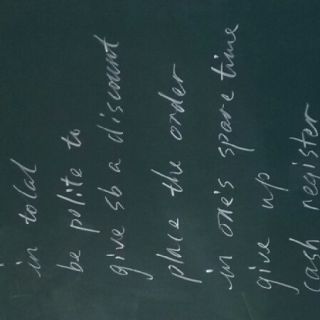 in total
be polite to
give sb a discount
place the order
in one's spare time
give up
cash register